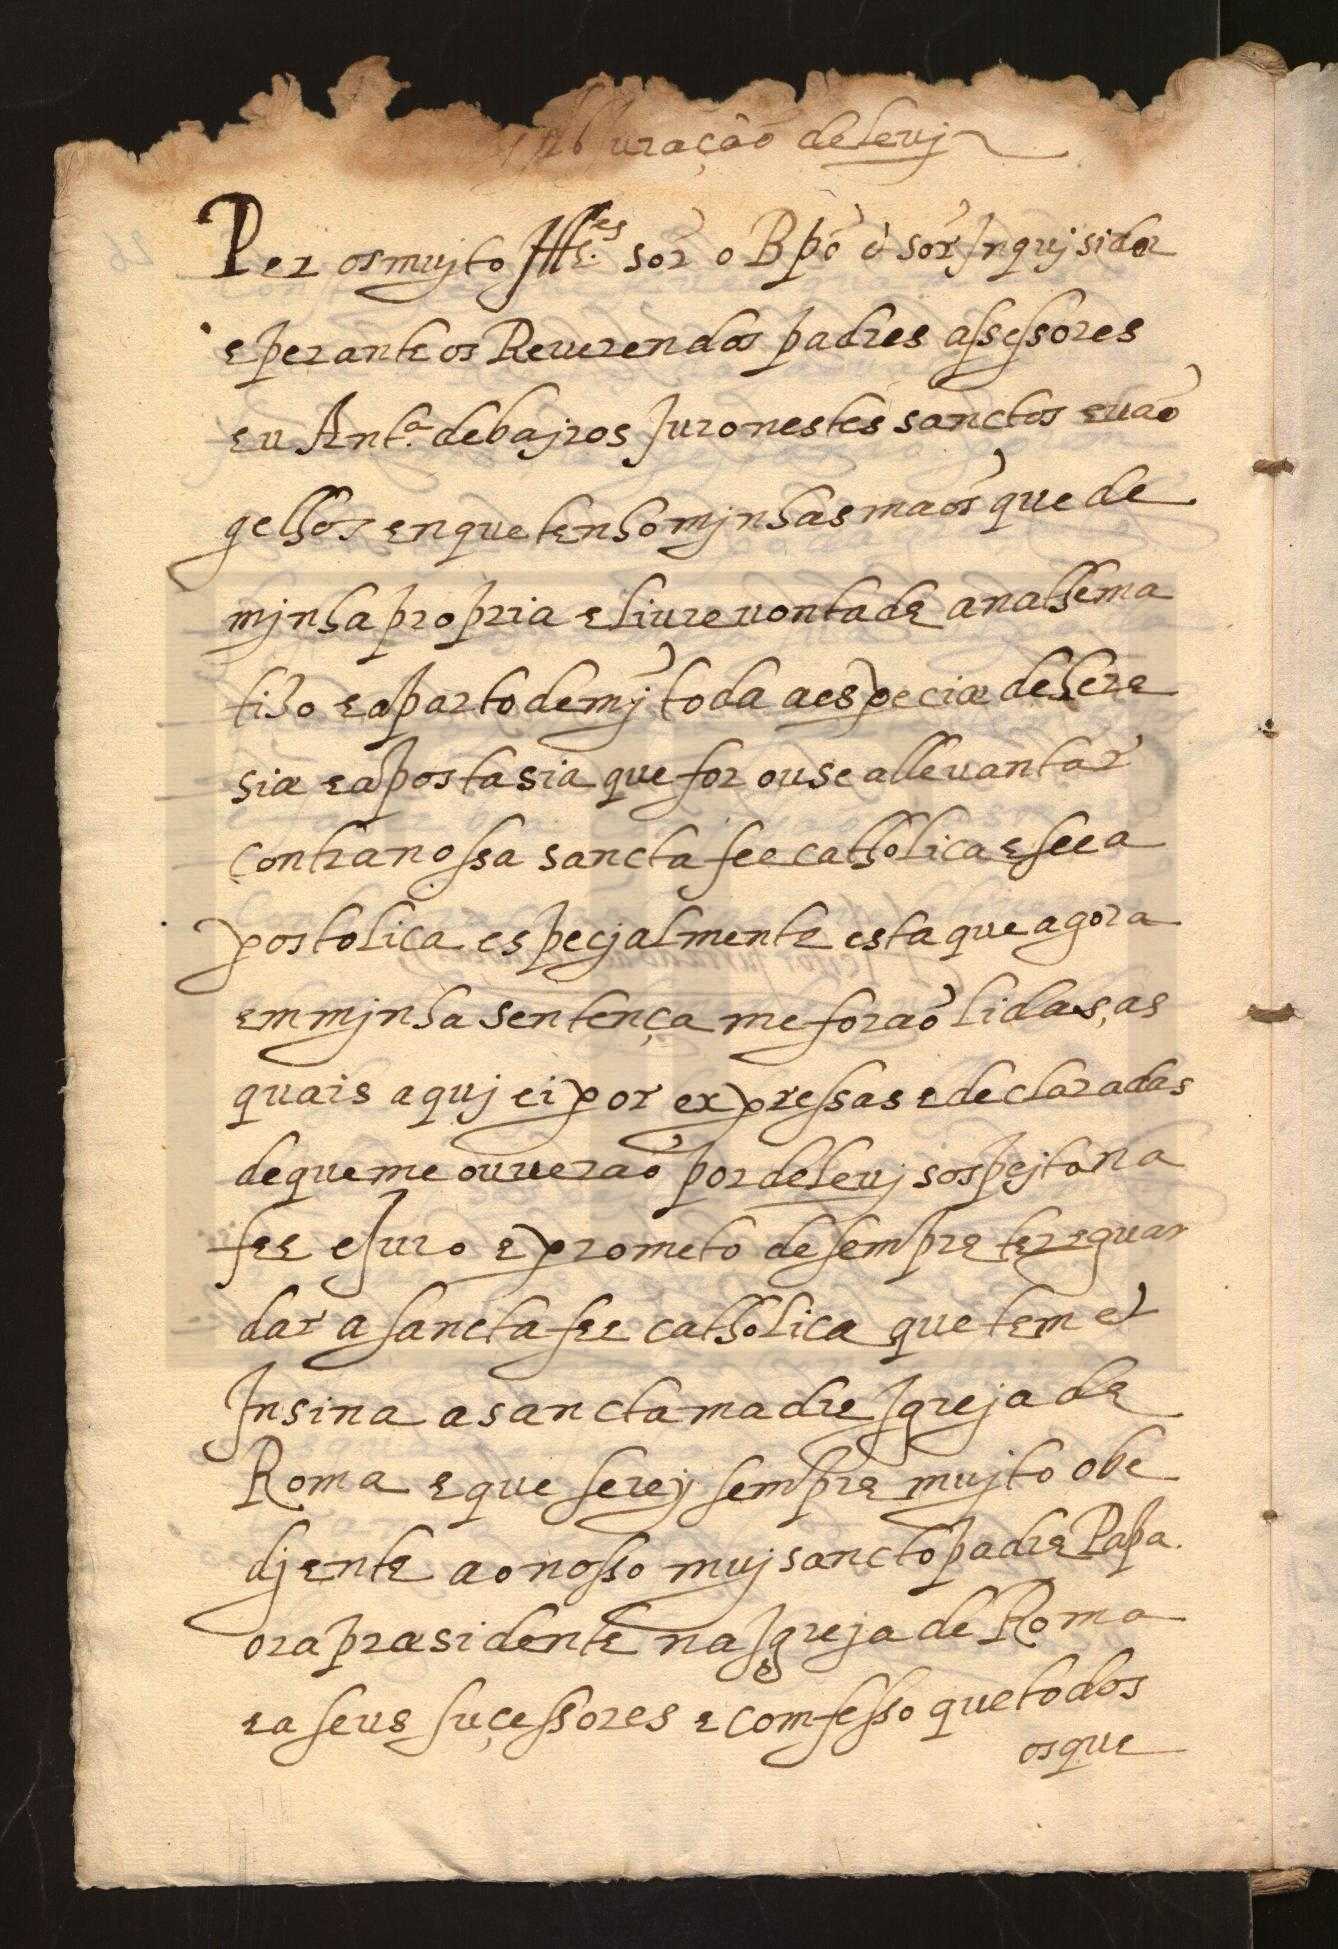 uração de levj
Per os mujto Illes. sor o Bpõ õ sor Inquj sidor
e perante os Reverendos padres assessores
eu Anta. de bajros Juro nestes sanctos evaõ
gelhos en que tenho mjnhas maõs que de
mjnha propria e liure vontade anathema
tiso e aparto de mỹ toda a especiæ de here
siæ e apostasia que for ou se allevantar
contra nossa sancta fee catholica e see a
postolica especjalmente esta que agora
em mjnha sentença me foraõ lidas, as
quais aquj ei por expressas e declaradas
de que me ouveraõ por de levj sospejto na
fee e Juro e prometo de sempre ter e guar
dar a sancta fee catholica que tem et
Insina a sancta madre Igreja de
Roma e que serej sempre mujto obe
djente ao nosso muj sancto padre Papa.
ora præsidente na Igreja de Roma
e a seus suçessores e comfesso que todos
os que